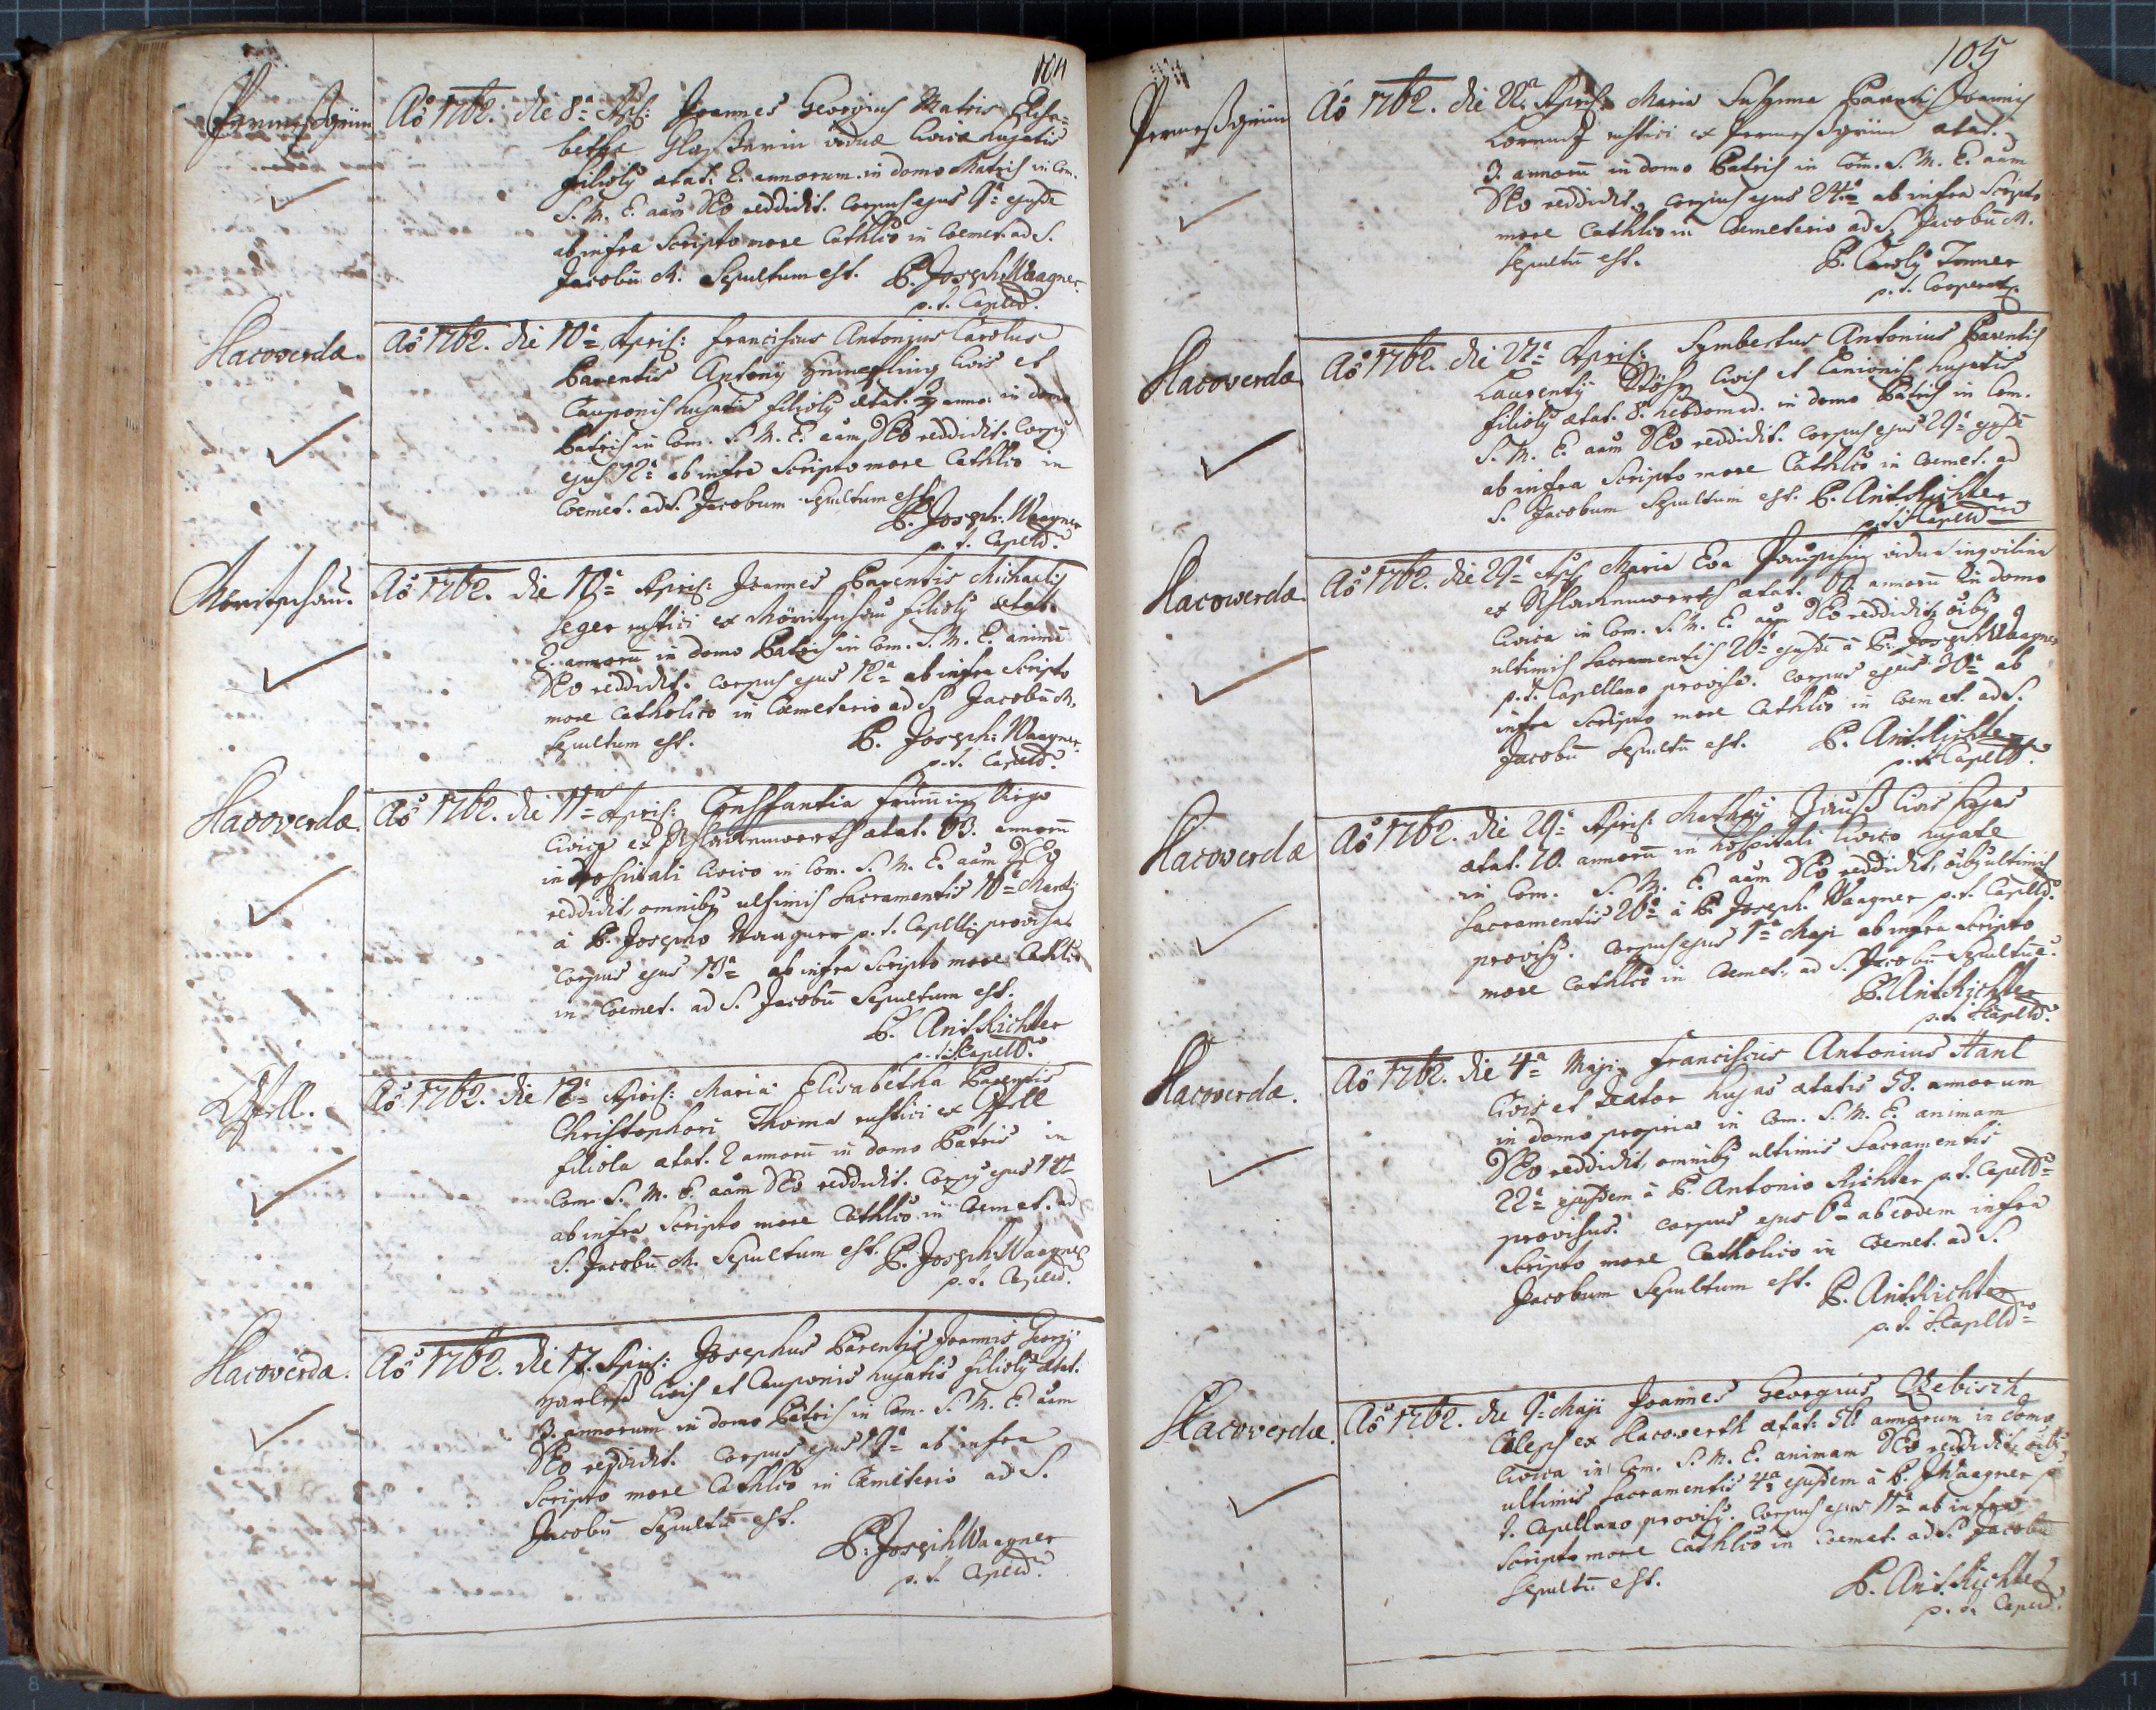 104
Aō 1762. die 8ª Apris: Joannes Georgius Matris Elisa=
bethæ viduæ Civicæ hujatis
filioly ætat: 2. annorum in domo Matris in Com.
S. M. E. aām Deo reddidit. Corpus ejus 9ª ejusdē
ab infra Scripto more Cathlico in Coemet. ad S.
Jacobū M. Sepultum est. P. Joseph: Waagner
p. t. Caplld.
Slacoverdæ. Aō 1762. die 10ª Apris: Franciscus Antonius Carolus
Parentis Antonij Civis et
Cauponis hujatis filioly ætat. anno: in domo
Patris in Com. S. M. E. aām Deo reddidit. Corpus
ejus 12ª ab infra Scripto more Cathlico in
Coemet. ad S. Jacobum Sepultum est.
P. Joseph: Waagner
p. t. Capelld.
Aō 1762. die Apris: Joannes Parentis Michaelis
Seger rustici ex filioly ætat.
2. annorū in domo Patris in Com. S. M. E. animā
Deo reddidit. Corpus ejus 12ª ab infra Scripto
more Catholico in Coemeterio ad S. Jacobū M.
Sepultum est. P. Joseph: Waagner.
p. t. Capelld.
Slacoverdæ. Aō 1762. die 11ª Apris: Constantia Virgo
Civica ex Schlackenwerth ætat. annorū
in Hospitali Civico in Com. S. M. E. aām Deo
reddidit, omniby ultimis Sacramentis 10ª Martij
à P. Josepho Waagner p. t. Capell: provisa.
Corpus ejus 13ª ab infra Scripto more Cathlico
in Coemet. ad S. Jacobū Sepultum est.
P. Ant. Richter
p. t. Capelld.
Aō 1762. die 12ª Apris: Maria Elisabetha Parentis
Christophori Thoma rustici ex
filiola ætat. 2 annorū in domo Patris in
Com. S. M. E. aām Deo reddidit. Corpus ejus 14ª
ab infra Scripto more Cathlico in Coemet. ad
S. Jacobū M. Sepultum est. P. Joseph: Waagner
p. t. Caplld.
Slacoverda. Aō 1762. die 17. Apris: Josephus Parentis Joannis Georgij
Civis et Cauponis hujatis filioly ætat.
3. annorum in domo Patris in Com. S. M. E. aām
Deo reddidit. Corpus ejus 19ª ab infra
Scripto more Cathlico in Cæmeterio ad S.
Jacobū Sepultū est.
P. Joseph Waagner
p. t. Caplld.
105
Permeßgrün Aō 1762. die 22ª Apris: Maria Susanna Parentis Joannis
Lorentz rustici ex Permeßgrün ætat.
3. annorū in domo Patris in Com. S. M. E. aām
Deo reddidit, Corpus ejus 24ª ab infra Scripto
more Cathlico in Coemeterio ad S. Jacobū M.
Sepultū est. P. Caroly Tonner
p. t. Cooperat.
Slacoverdæ Aō 1762. die 27ª Apris: Symbertus Antonius Parentis
Laurentij Civis et Lanionis hujatis
filioly ætat. 8. hebdomad. in domo Patris in Com.
S. M. E. aām Deo reddidit. Corpus ejus 29ª ejusdē
ab infra Scripto more Cathlico in Coemet. ad
S. Jacobum Sepultum est. P. Ant. Richter
p. t. Capelld.
Slacowerdæ. Aō 1762. die 29ª Apris: Maria Eva vidua inquilina
ex Schlackenwerth ætat. annorū in domo
Civica in Com. S. M. E. aām Deo reddidit, oiby
ultimis Sacramentis 20ª ejusdē à P. Joseph Waagner
p. t. Capellano provisa. Corpus ejus 30ª ab
infra Scripto more Cathlico in Coemet. ad S.
Jacobū Sepultū est. P. Ant. Richter
p. t. Capelld.
Slacoverdæ Aō 1762. die 29ª Apris: Civis hujas
ætat. 70. annorū in Hospitali Civico hujate
in Com. S. M. E. aām Deo reddidit, oiby ultimis
Sacramentis 26ª à P. Joseph Waagner p. t. Capelld.
provisy. Corpus ejus 1ª Maji ab infra Scripto
more Cathlico in Coemet. ad S. Jacobū Sepultū ē.
P. Ant. Richter
p. t. Capelld.
Slacoverdæ. Aō 1762. die 4ª Maji Franciscus Antonius Hanl
Civis et hujas ætatis 58. annorum
in domo propria in Com. S. M. E. animam
Deo reddidit, omniby ultimis Sacramentis
22ª ejusdem à P. Antonio Richter p. t. Capelld.
provisus. Corpus ejus 6ª ab eodem infra
Scripto more Catholico in Coemet. ad S.
Jacobum Sepultum est. P. Ant. Richter
p. t. Caplld.
Slacoverdæ. Aō 1762. die 9ª Maji Joannes Georgius
Cælebs ex Slacowerth ætat: 56. annorum in domo
Civica in Com. S. M. E. animam Deo reddidit, oiby
ultimis Sacramentis 4ª ejusdem à P. J Waagner p.
t. Capellano provisy. Corpus ejus 11ª ab infra
Scripto more Cathlico in Coemet. ad S. Jacobū
Sepultū est. P. Ant. Richter
p. t. Capelld.